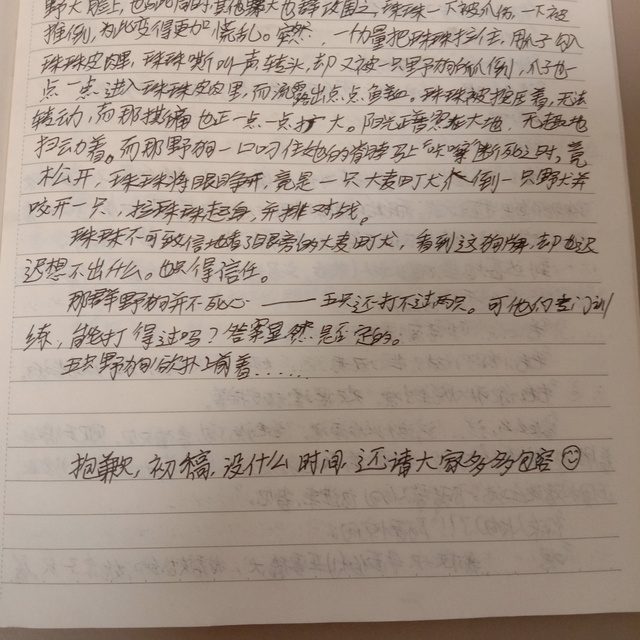 野犬脸上,也与此同时其他野犬也群攻围之,珠珠一下被爪伤,一下被
推倒,为此变得更加慌乱。突然,一份力量把珠珠拉住,用爪子勾入
珠珠皮肉里,珠珠嘶叫声转头,却又被一只野狗所抓倒,爪子也一
点一点进入珠珠皮肉里,而流露出点点鱼血。珠珠被控压着,无法
转动,而那撕痛也正一点一点扩大。阳光正普照在大地,无趣地
扫动着。而那野狗一口叼住她的脊脖马上"咔嚓"断死之时,竟
松开,珠珠将眼睁开,竟是一只大麦町犬扑倒一只野犬并
咬开一只,拉珠珠起身,并排对战。
珠珠不可致信地看了眼旁的大麦町犬,看到这狗牌,却也迟
迟想不出什么。也只得信任。
那群野狗并不死心——五只还打不过两只。可他们专门训
练,能打得过吗?答案显然是否定的。
五只野狗欲扑上前着……
抱歉,初稿,没什么时间,还请大家多多包容☺